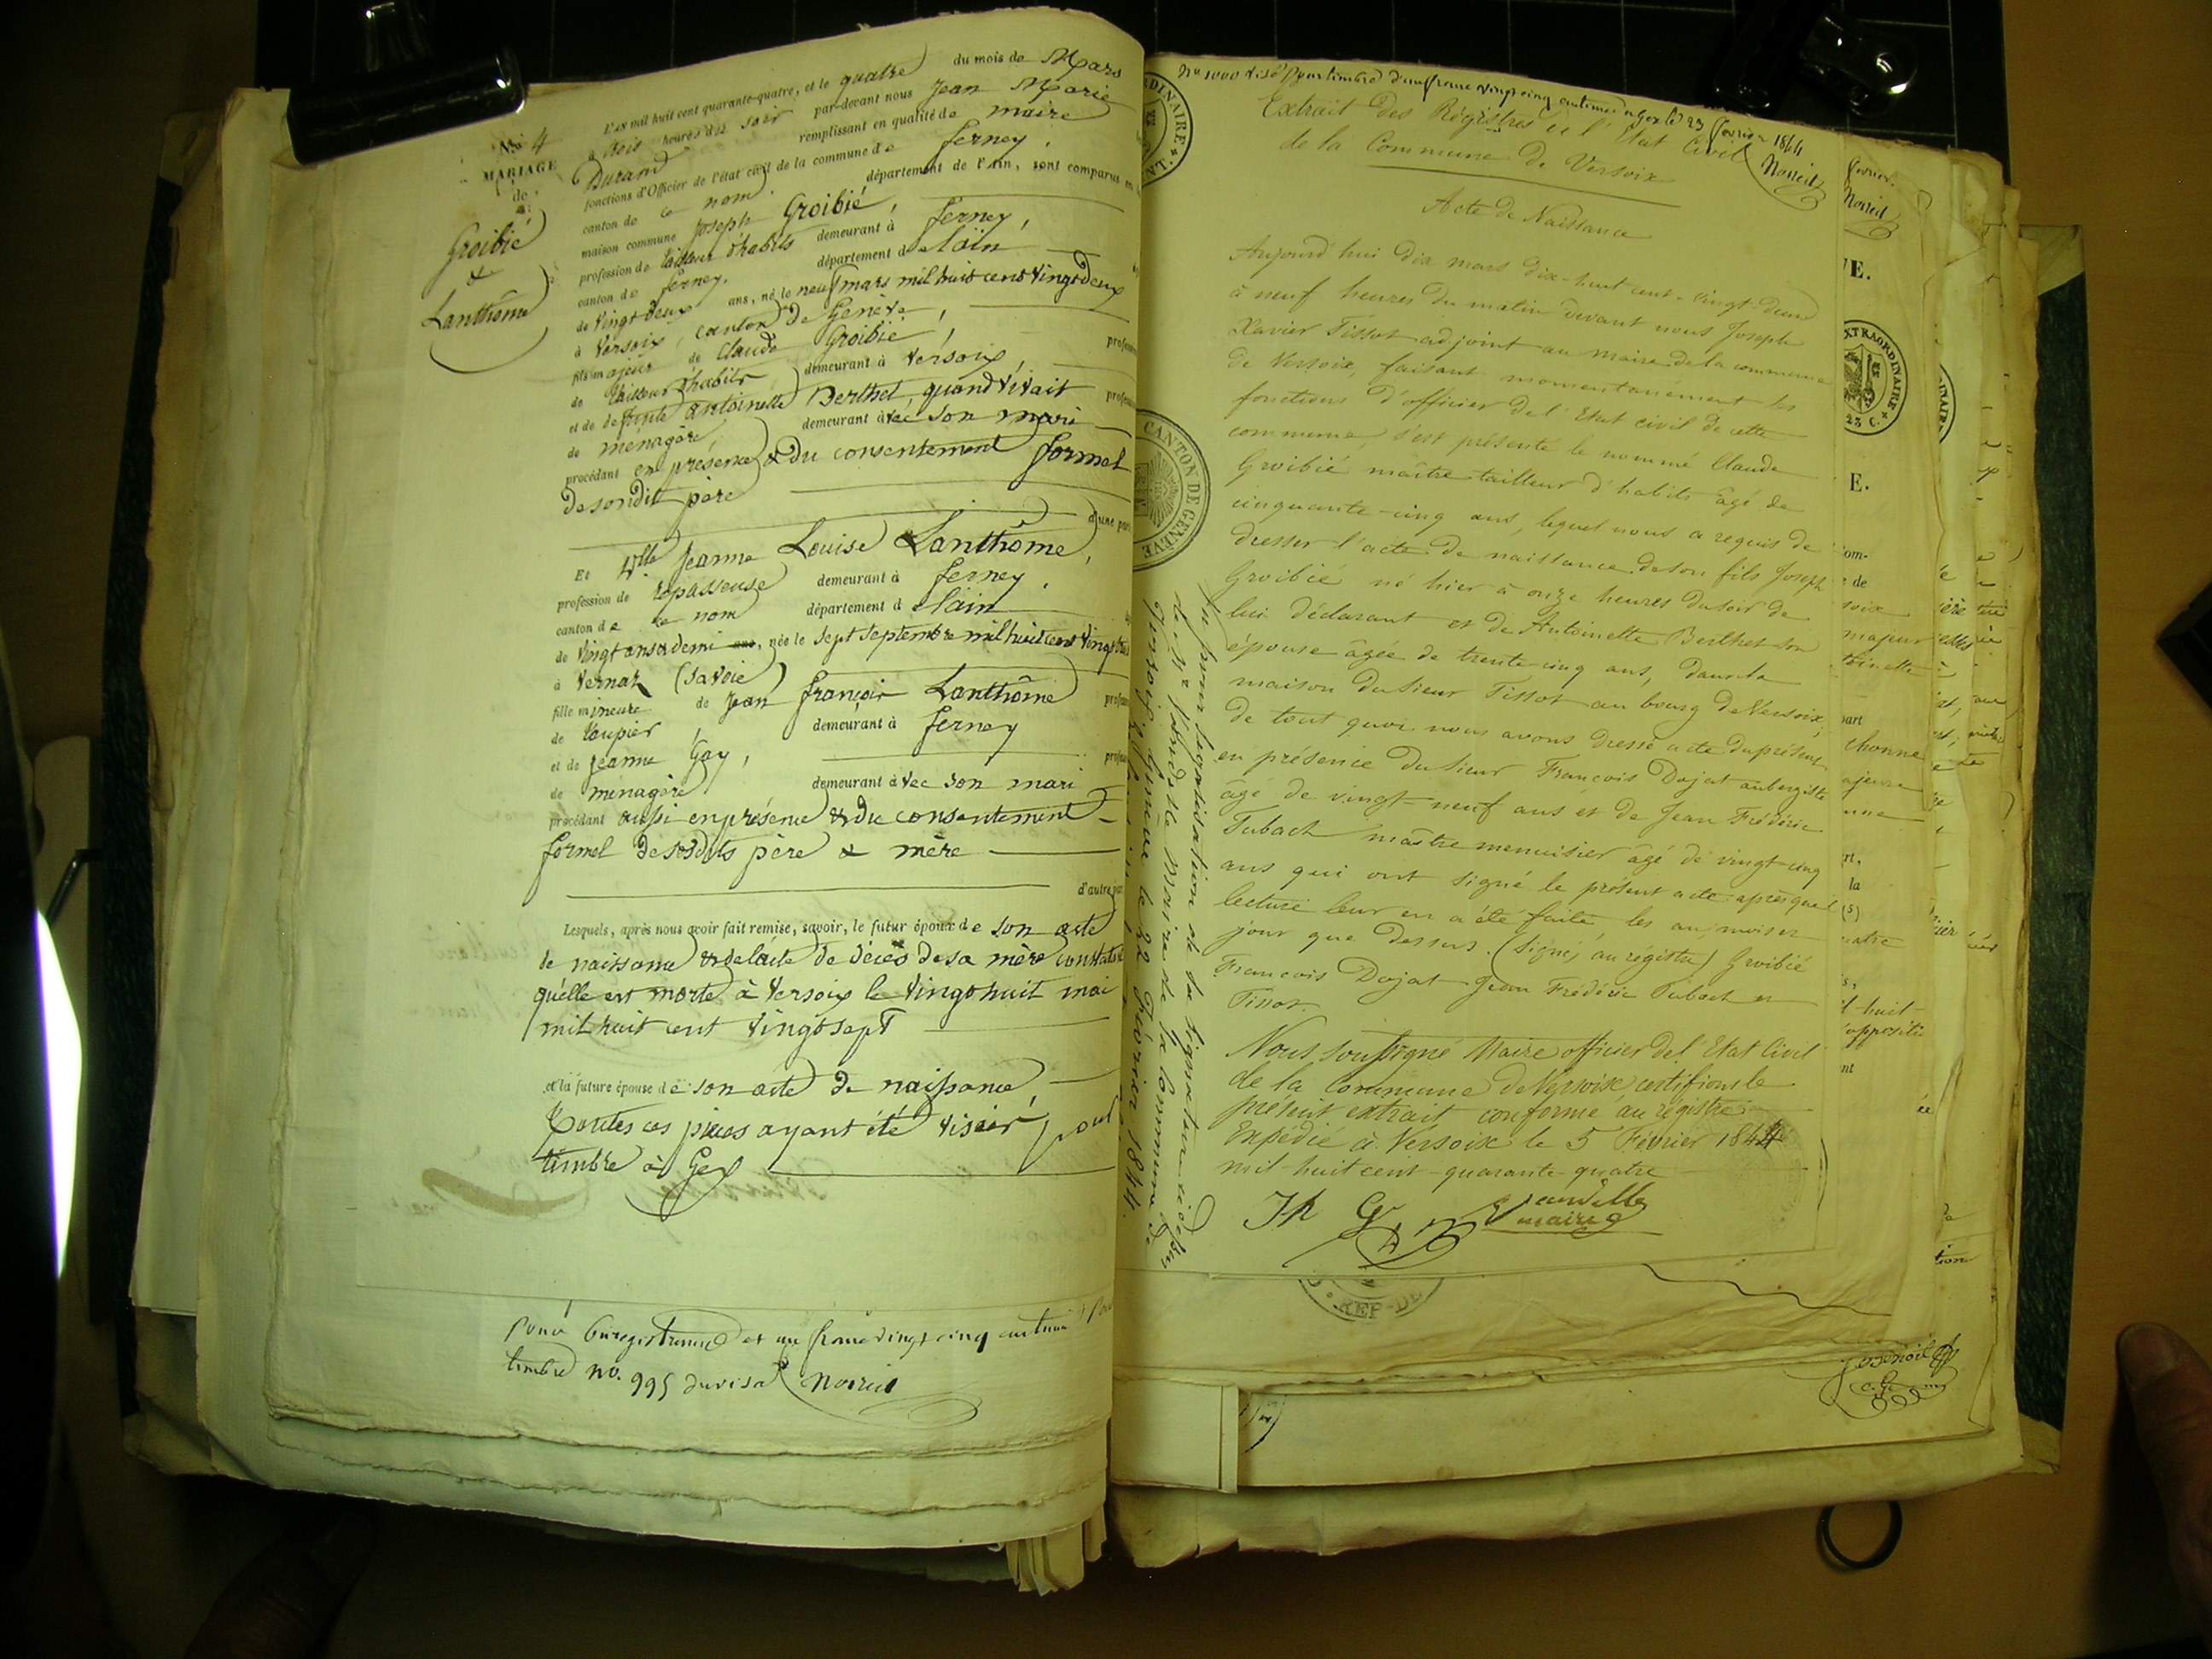 No 4
MARIAGE
de
Groibié
&
Lanthôme
L'an mil huit cent quarante-quatre, et le quatre du mois de Mars
à trois heures du soir par-devant nous Jean Marie
Durand remplissant en qualité de maire
fonctions d'Officier de l'état civil de la commune de ferney,
canton de ce nom département de l'Ain, sont comparus en
maison commune Joseph Groibié,
profession de tailleur d'habits demeurant à ferney,
canton de ferney. département de l'ain
de vingt deux ans, né le neuf mars mil huit cent vingt deux
à Versoix, canton de Genève,
fils majeur de Claude Groibié
de tailleur d'habits demeurant à Versoix,
et de defunte antoinette Berthet quand vivait
de ménagère, demeurant avec son mari
procédant en présence & du consentement formel
de son dit père
d'une part
Et Dlle Jeanne Louise Lanthôme,
profession de repasseuse demeurant à ferney.
canton de ce nom département de l'ain
de vingt ans & demi ans, née le sept septembre mil huit cent vingt trois
à Vernaz (Savoie)
fille mineure de Jean françois Lanthôme
de toupier, demeurant à ferney
et de jeanne Gay,
de ménagère demeurant avec son mari
procédant aussi en présence & du consentement
formel de sesdits père & mère
d'autre part
Lesquels, après nous avoir fait remise, savoir, le futur époux de son acte
de naissance & de l'acte de décès de sa mère constatant
qu'elle est morte à Versoix le vingt huit mai
mil huit cent vingt sept
et la future épouse de son acte de naissance
toutes ces pièces ayant été visées pour
timbre à Gex
pour Enregistrement et un franc vingt cinq centimes
timbre no. 995 du visa Noireil
No 1000 visé pour timbre d'un franc vingt cinq centimes à Gex le 23 février 1844
Noireil
Extrait des Régistres de l'Etat Civil
de la Commune de Versoix
Acte de Naissance
Aujourd'hui dix mars dix-huit cent-vingt deux
à neuf heures du matin devant nous Joseph
Xavier Tissot adjoint au maire de la commune
de Versoix, faisant momentanément les
fonctions d'officier de l'Etat civil de cette
commune, s'est présenté le nommé Claude
Groibié maître tailleur d'habits âgé de
cinquante-cinq ans, lequel nous a requis de
dresser l'acte de naissance de son fils Joseph
Groibié né hier à onze heures du soir de
lui déclarant et de Antoinette Berthet son
épouse âgée de trente cinq ans, dans la
maison du Sieur Tissot au bourg de Versoix,
de tout quoi nous avons dressé acte du présent
en présence du Sieur François Dojat aubergiste
âgé de vingt-neuf ans et de Jean Frédéric
Tubach maître menuisier âgé de vingt-cinq
ans qui ont signé le présent acte après que
lecture leur en a été faite, les an, mois et
jour que dessus. (Signés au régistre) Groibié
François Dojat Jean Frédéric Tubach et
Tissot.
Nous soussigné Maire officier de l'Etat Civil
de la Commune de Versoix certifions le
présent extrait conforme au régistre
Expédié à Versoix le 5 Février 1844
mil-huit cent-quarante-quatre
maire
CANTON DE GENÈVE
EXTRAORDINAIRE